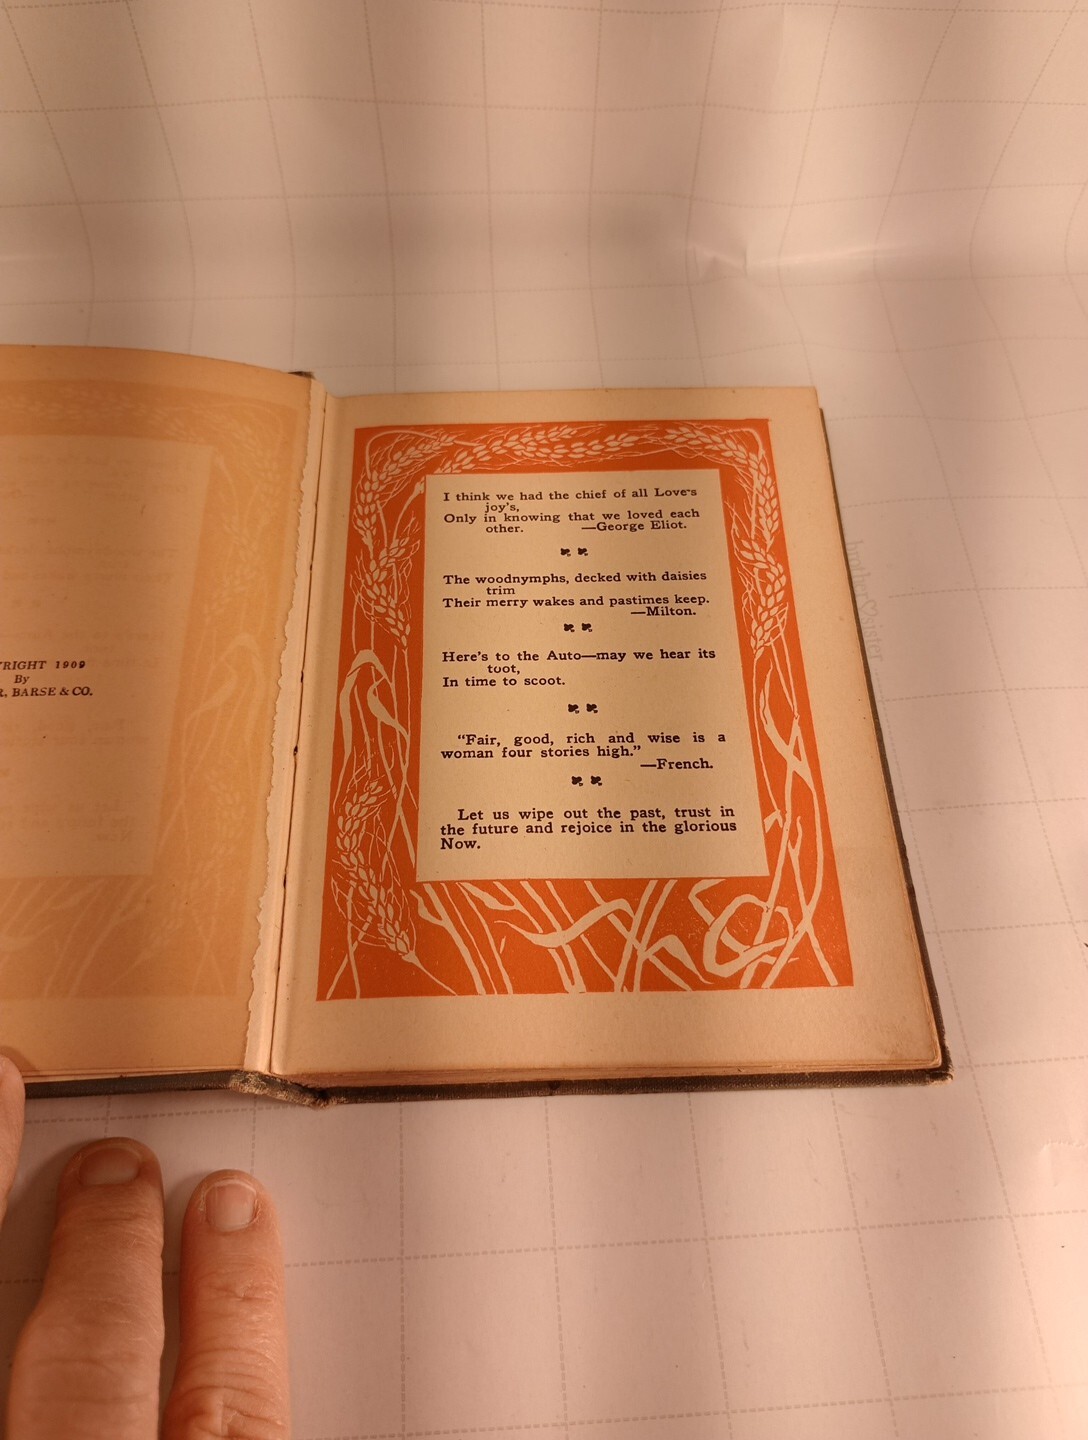 YRIGHT 1909
By
R, BARSE & CO.
I think we had the chief of all Love's
joy's,
Only in knowing that we loved each
other. —George Eliot.
The woodnymphs, decked with daisies
trim
Their merry wakes and pastimes keep.
—Milton.
Here's to the Auto—may we hear its
toot,
In time to scoot.
"Fair, good, rich and wise is a
woman four stories high."
—French.
Let us wipe out the past, trust in
the future and rejoice in the glorious
Now.
brother♡sister